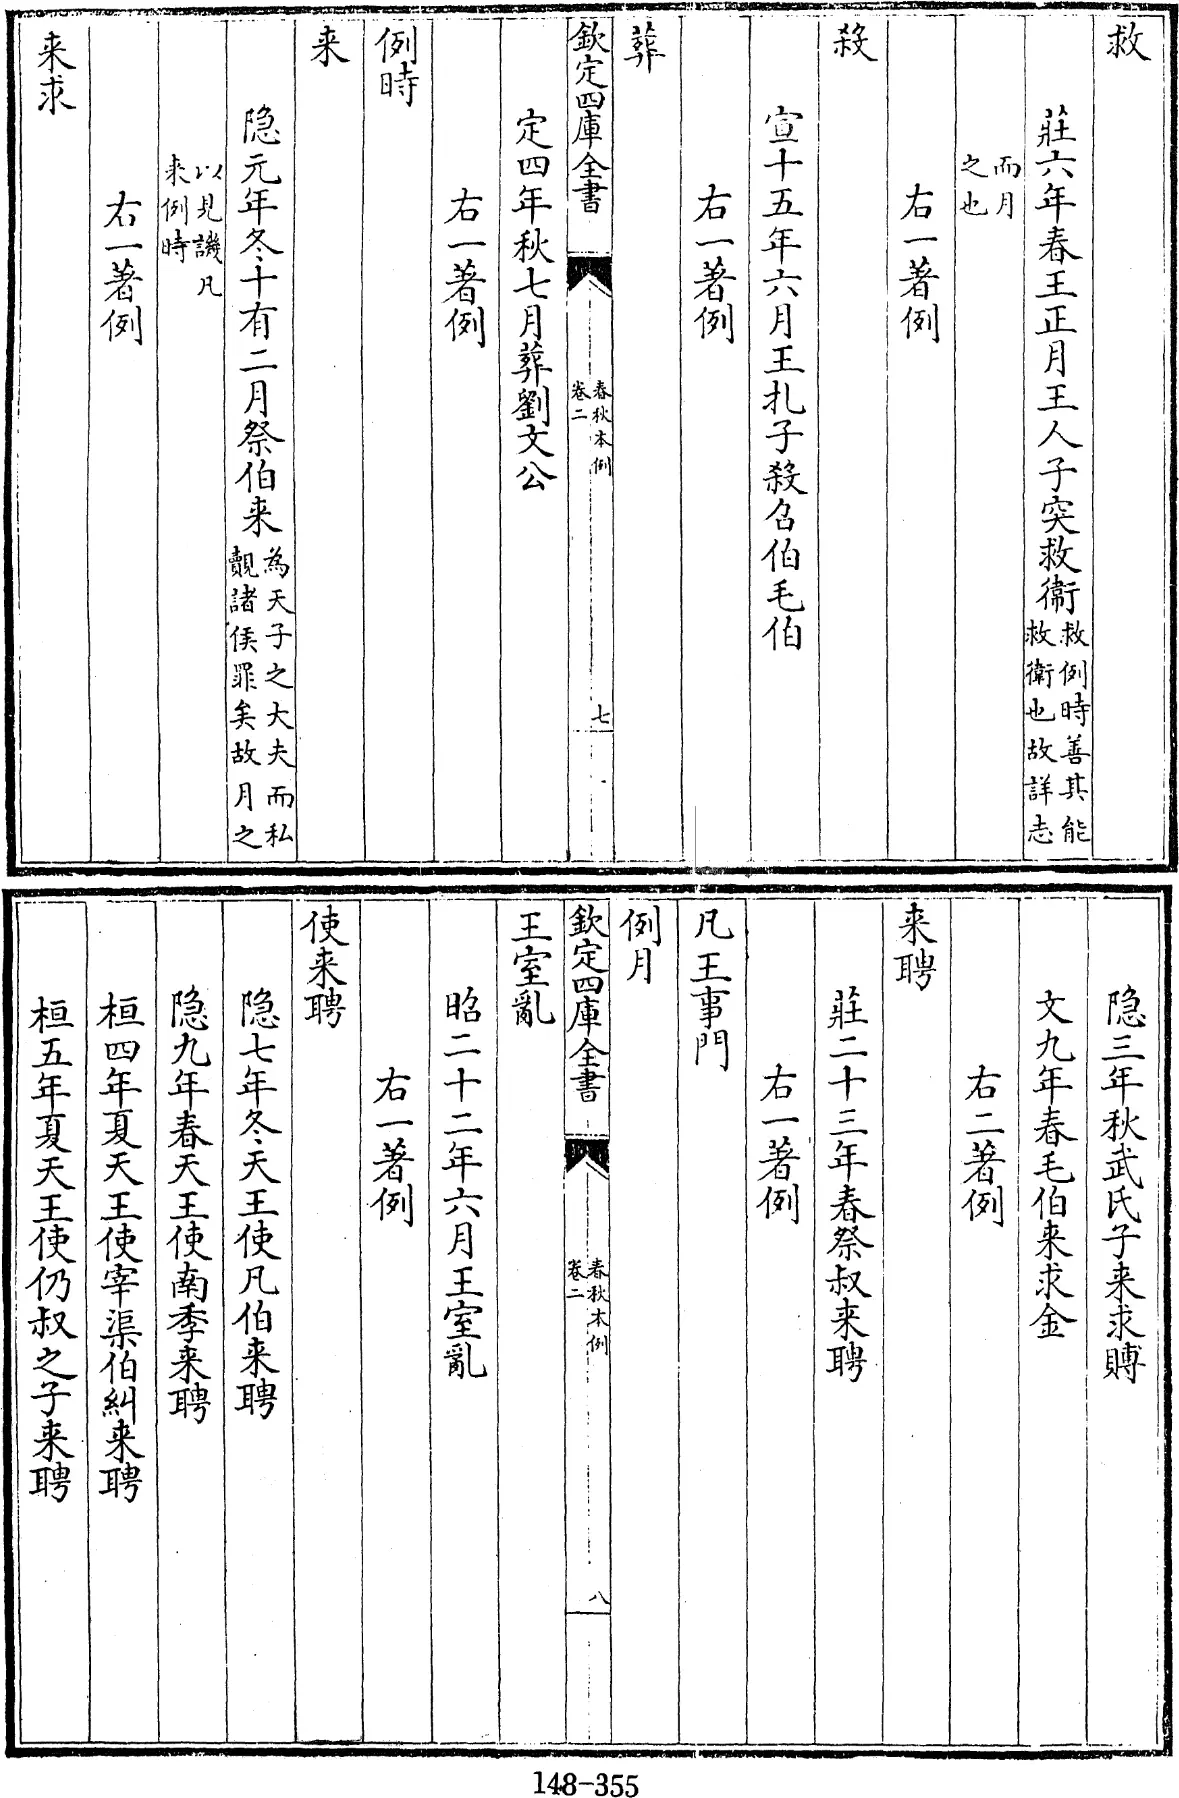 救
莊六年春王正月王人子突救衞救例時善其能救衛也故詳志
而月之也
右一著例
殺
宣十五年六月王札子殺召伯毛伯
右一著例
葬
欽定四庫全書
春秋本例
卷二
七
定四年秋七月葬劉文公
右一著例
例時
来
隐元年冬十有二月祭伯来為天子之大夫而私覿諸侯罪矣故月之
以見譏凡来例時
右一著例
来求
隐三年秋武氏子来求賻
文九年春毛伯来求金
右二著例
来聘
莊二十三年春祭叔来聘
右一著例
凡王事門
例月
欽定四庫全書
春秋本例
卷二
八
王室亂
昭二十二年六月王室亂
右一著例
使来聘
隐七年冬天王使凡伯来聘
隐九年春天王使南季来聘
桓四年夏天王使宰渠伯糾来聘
桓五年夏天王使仍叔之子来聘
148-355